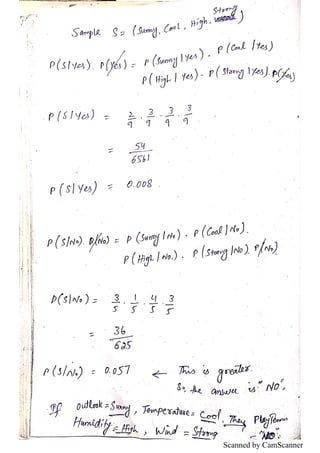 Strong
Sample S = (Sunny, Cool, High, )
P(S|Yes). P(Yes) = P(Sunny|Yes). P(Cool|Yes)
P(High|Yes). P(Strong|Yes). P(Yes)
P(S|Yes) = 2/9 . 3/9 . 3/9 . 3/9
= 54/6561
P(S|Yes) = 0.008
P(S|No). P(No) = P(Sunny|No). P(Cool|No).
P(High|No.). P(Strong|No). P(No)
P(S|No) = 3/5 . 1/5 . 4/5 . 3/5
= 36/625
P(S|No) = 0.057 ← This is greater.
So, the answer is "NO".
If outlook = Sunny, Temperature = Cool, They PlayTennis
Humidity = High, Wind = Strong - "NO".
Scanned by CamScanner